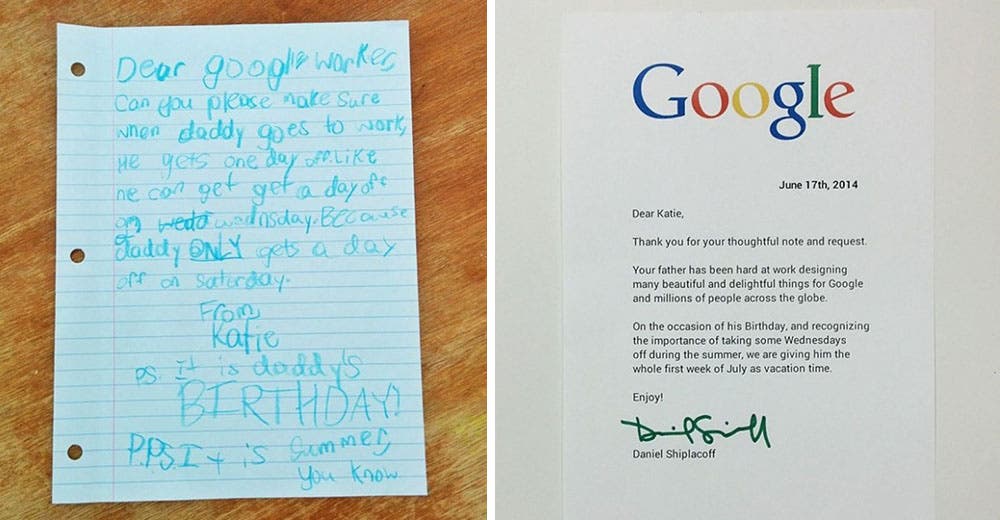 Dear google worker,
Can you please make sure
when daddy goes to work,
He gets one day off. Like
he can get get a day off
on wednsday. BECause
daddy ONLY gets a day
off on saturday.
From,
Katie
P.S. It is daddy's
BIRTHDAY!
P.P.S. It is summer,
you know
Google
June 17th, 2014
Dear Katie,
Thank you for your thoughtful note and request.
Your father has been hard at work designing
many beautiful and delightful things for Google
and millions of people across the globe.
On the occasion of his Birthday, and recognizing
the importance of taking some Wednesdays
off during the summer, we are giving him the
whole first week of July as vacation time.
Enjoy!
Daniel Shiplacoff